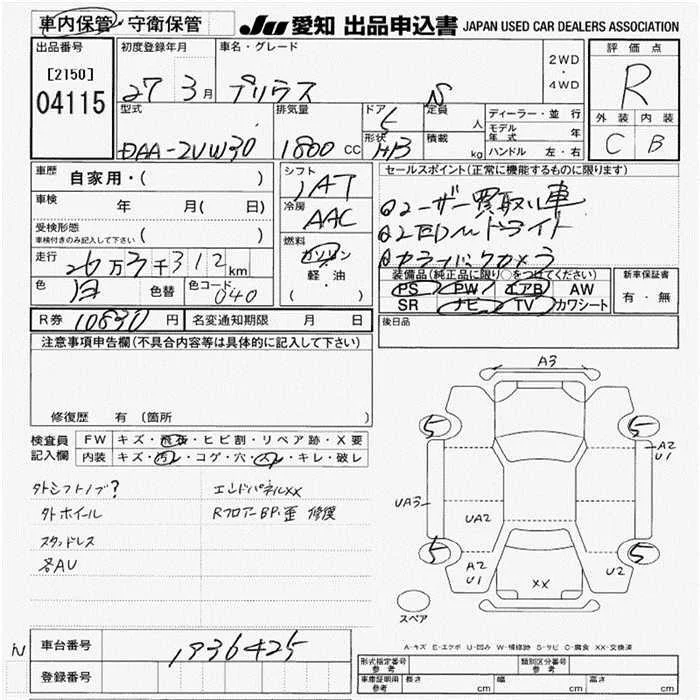 車内保管・守衛保管
JU 愛知 出品申込書 JAPAN USED CAR DEALERS ASSOCIATION
出品番号 初度登録年月 車名・グレード 2WD・4WD 評価点
[2150] 27 3月 プリウス S R
04115
型式 排気量 ドア 5 定員 人 ディーラー・並行 外装 内装
DAA-ZVW30 1800 CC 形状 HB 積載 kg モデル年式 年 C B
ハンドル 左・右
車歴 自家用・( ) シフト IAT セールスポイント(正常に機能するものに限ります)
車検 年 月( 日) 冷房 AAC ①ユーザー買取り車
受検形態 車検付きのみ記入して下さい ( ) ②
走行 26万3千312km 燃料 ガソリン 軽・油 ( ) バックカメラ
色 白 色替 色コード 040 装備品(純正品に限り○をつけてください) 新車保証書
PS PW エアB AW 有・無
SR ナビ TV カワシート
R券 10830円 名変通知期限 月 日 後日品
注意事項申告欄(不具合内容等は具体的に記入して下さい)
修復歴 有 (箇所
検査員記入欄 FW キズ・飛石・ヒビ割・リペア跡・X要
内装 キズ・汚レ・コゲ・穴・スレ・キレ・破レ
外シフトノブ? エンドパネルXX
外ホイール Rフロアー BP・歪 修復
スタッドレス
各AU
A3
5 5
A2
U1
UA3 UA2
5 5
A2
U1
XX
U2
スペア
A-キズ E-エクボ U-凹み W-補修跡 S-サビ C-腐食 XX-交換済
N 車台番号 1936425
登録番号
型式指定番号 参考 類別区分番号 参考
車庫証明用 参考 長さ cm 幅 cm 高さ cm